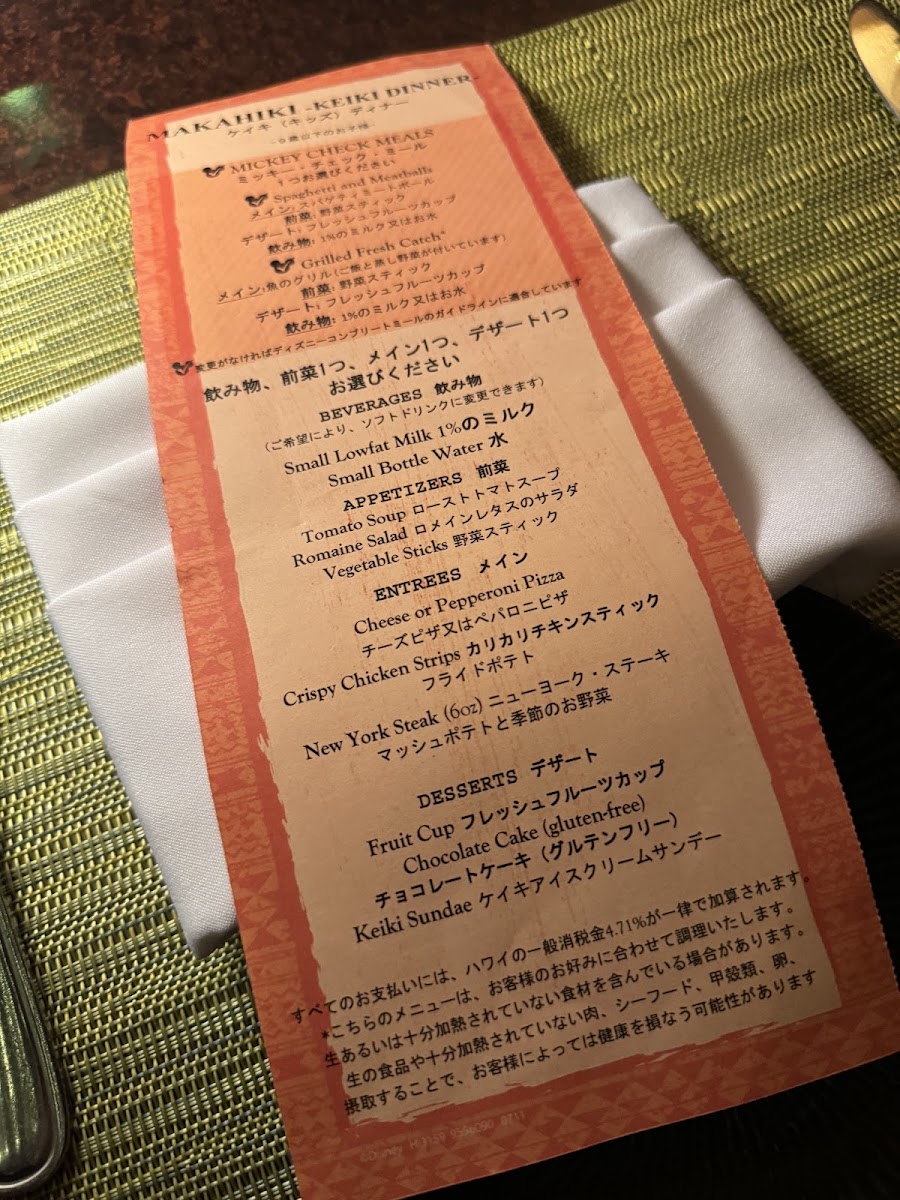 MAKAHIKI -KEIKI DINNER-
ケイキ（キッズ）ディナー
-9歳以下のお子様-
MICKEY CHECK MEALS
ミッキー・チェック・ミール
1つお選びください
Spaghetti and Meatballs
メイン: スパゲティミートボール
前菜: 野菜スティック
デザート: フレッシュフルーツカップ
飲み物: 1%のミルク又はお水
Grilled Fresh Catch*
メイン:魚のグリル(ご飯と蒸し野菜が付いています)
前菜: 野菜スティック
デザート: フレッシュフルーツカップ
飲み物: 1%のミルク又はお水
変更がなければディズニーコンプリートミールのガイドラインに適合しています
飲み物、前菜1つ、メイン1つ、デザート1つ
お選びください
BEVERAGES 飲み物
(ご希望により、ソフトドリンクに変更できます)
Small Lowfat Milk 1%のミルク
Small Bottle Water 水
APPETIZERS 前菜
Tomato Soup ローストトマトスープ
Romaine Salad ロメインレタスのサラダ
Vegetable Sticks 野菜スティック
ENTREES メイン
Cheese or Pepperoni Pizza
チーズピザ又はペパロニピザ
Crispy Chicken Strips カリカリチキンスティック
フライドポテト
New York Steak (6oz) ニューヨーク・ステーキ
マッシュポテトと季節のお野菜
DESSERTS デザート
Fruit Cup フレッシュフルーツカップ
Chocolate Cake (gluten-free)
チョコレートケーキ（グルテンフリー）
Keiki Sundae ケイキアイスクリームサンデー
すべてのお支払いには、ハワイの一般消税金4.71%が一律で加算されます。
*こちらのメニューは、お客様のお好みに合わせて調理いたします。
生あるいは十分加熱されていない食材を含んでいる場合があります。
生の食品や十分加熱されていない肉、シーフード、甲殻類、卵、
摂取することで、お客様によっては健康を損なう可能性があります